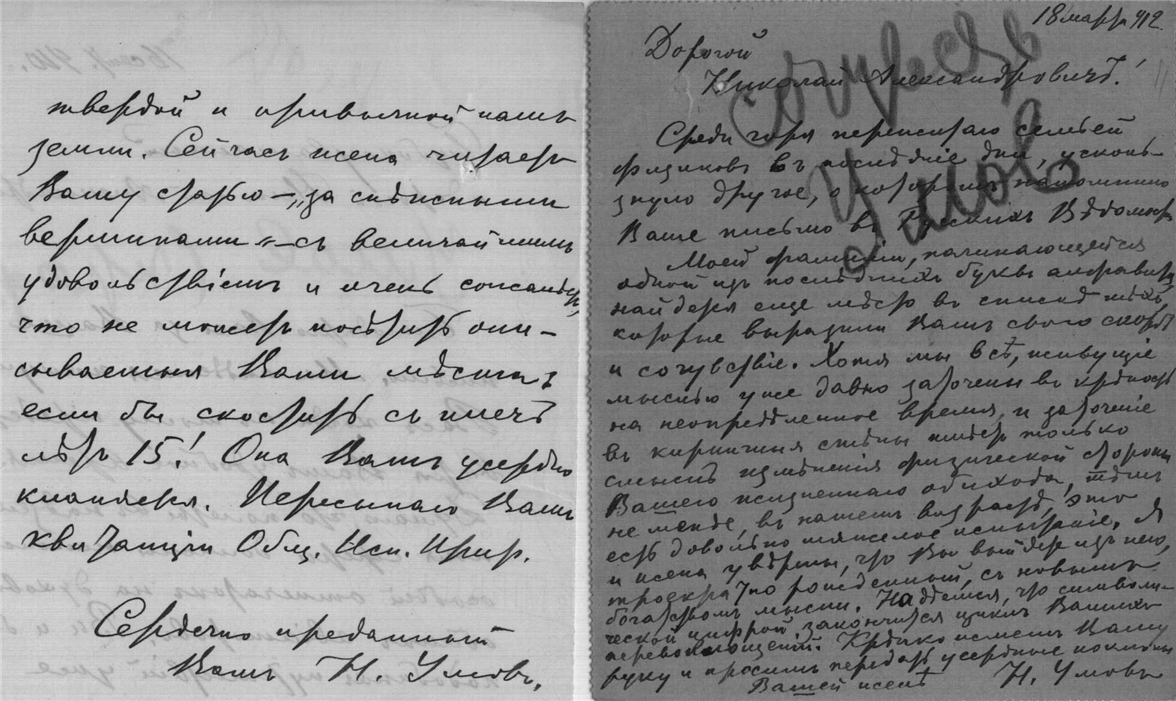 твердой и привычной намъ
земли. Сейчасъ жена читаетъ
Вашу статью – „за снѣжными
вершинами“ – съ величайшимъ
удовольствіемъ и очень сожалѣетъ,
что не можетъ посѣтить опи-
сываемыя Вами мѣста,
если бы скостить съ плечъ
лѣтъ 15! Она Вамъ усердно
кланяется. Пересылаю Вамъ
квитанціи Общ. Исп. Прир.
Сердечно преданный
Вамъ Н. Умовъ.
18 март 912
Дорогой
Николай Александровичъ!
Среди горя пережитаго семьей
физиковъ въ послѣдніе дни, усколь-
знуло другое, о которомъ напомнило
Ваше письмо въ Русскихъ Вѣдомост.
Моей фамиліи, начинающейся
одной изъ послѣднихъ буквъ алфавита,
найдется еще мѣсто въ спискѣ тѣхъ,
которые выразили Вамъ свою скорбь
и сочувствіе. Хотя мы всѣ, живущіе
мыслью уже давно заточены въ крѣпость
на неопредѣленное время, и заточеніе
въ кирпичныя стѣны имѣетъ только
смыслъ измѣненія физической стороны
Вашего жизненнаго обихода, тѣмъ
не менѣе, въ нашемъ возрастѣ, это
есть довольно тяжелое испытаніе. Я
и жена увѣрены, что Вы выйдете изъ него,
троекратно рожденный, съ новымъ
богатствомъ мысли. Надѣемся, что символи-
ческой цифрой закончится циклъ Вашихъ
перевоплощеній. Крѣпко жмемъ Вашу
руку и просимъ передать усердные поклоны
Вашей женѣ Н. Умовъ
сочувств
Умов